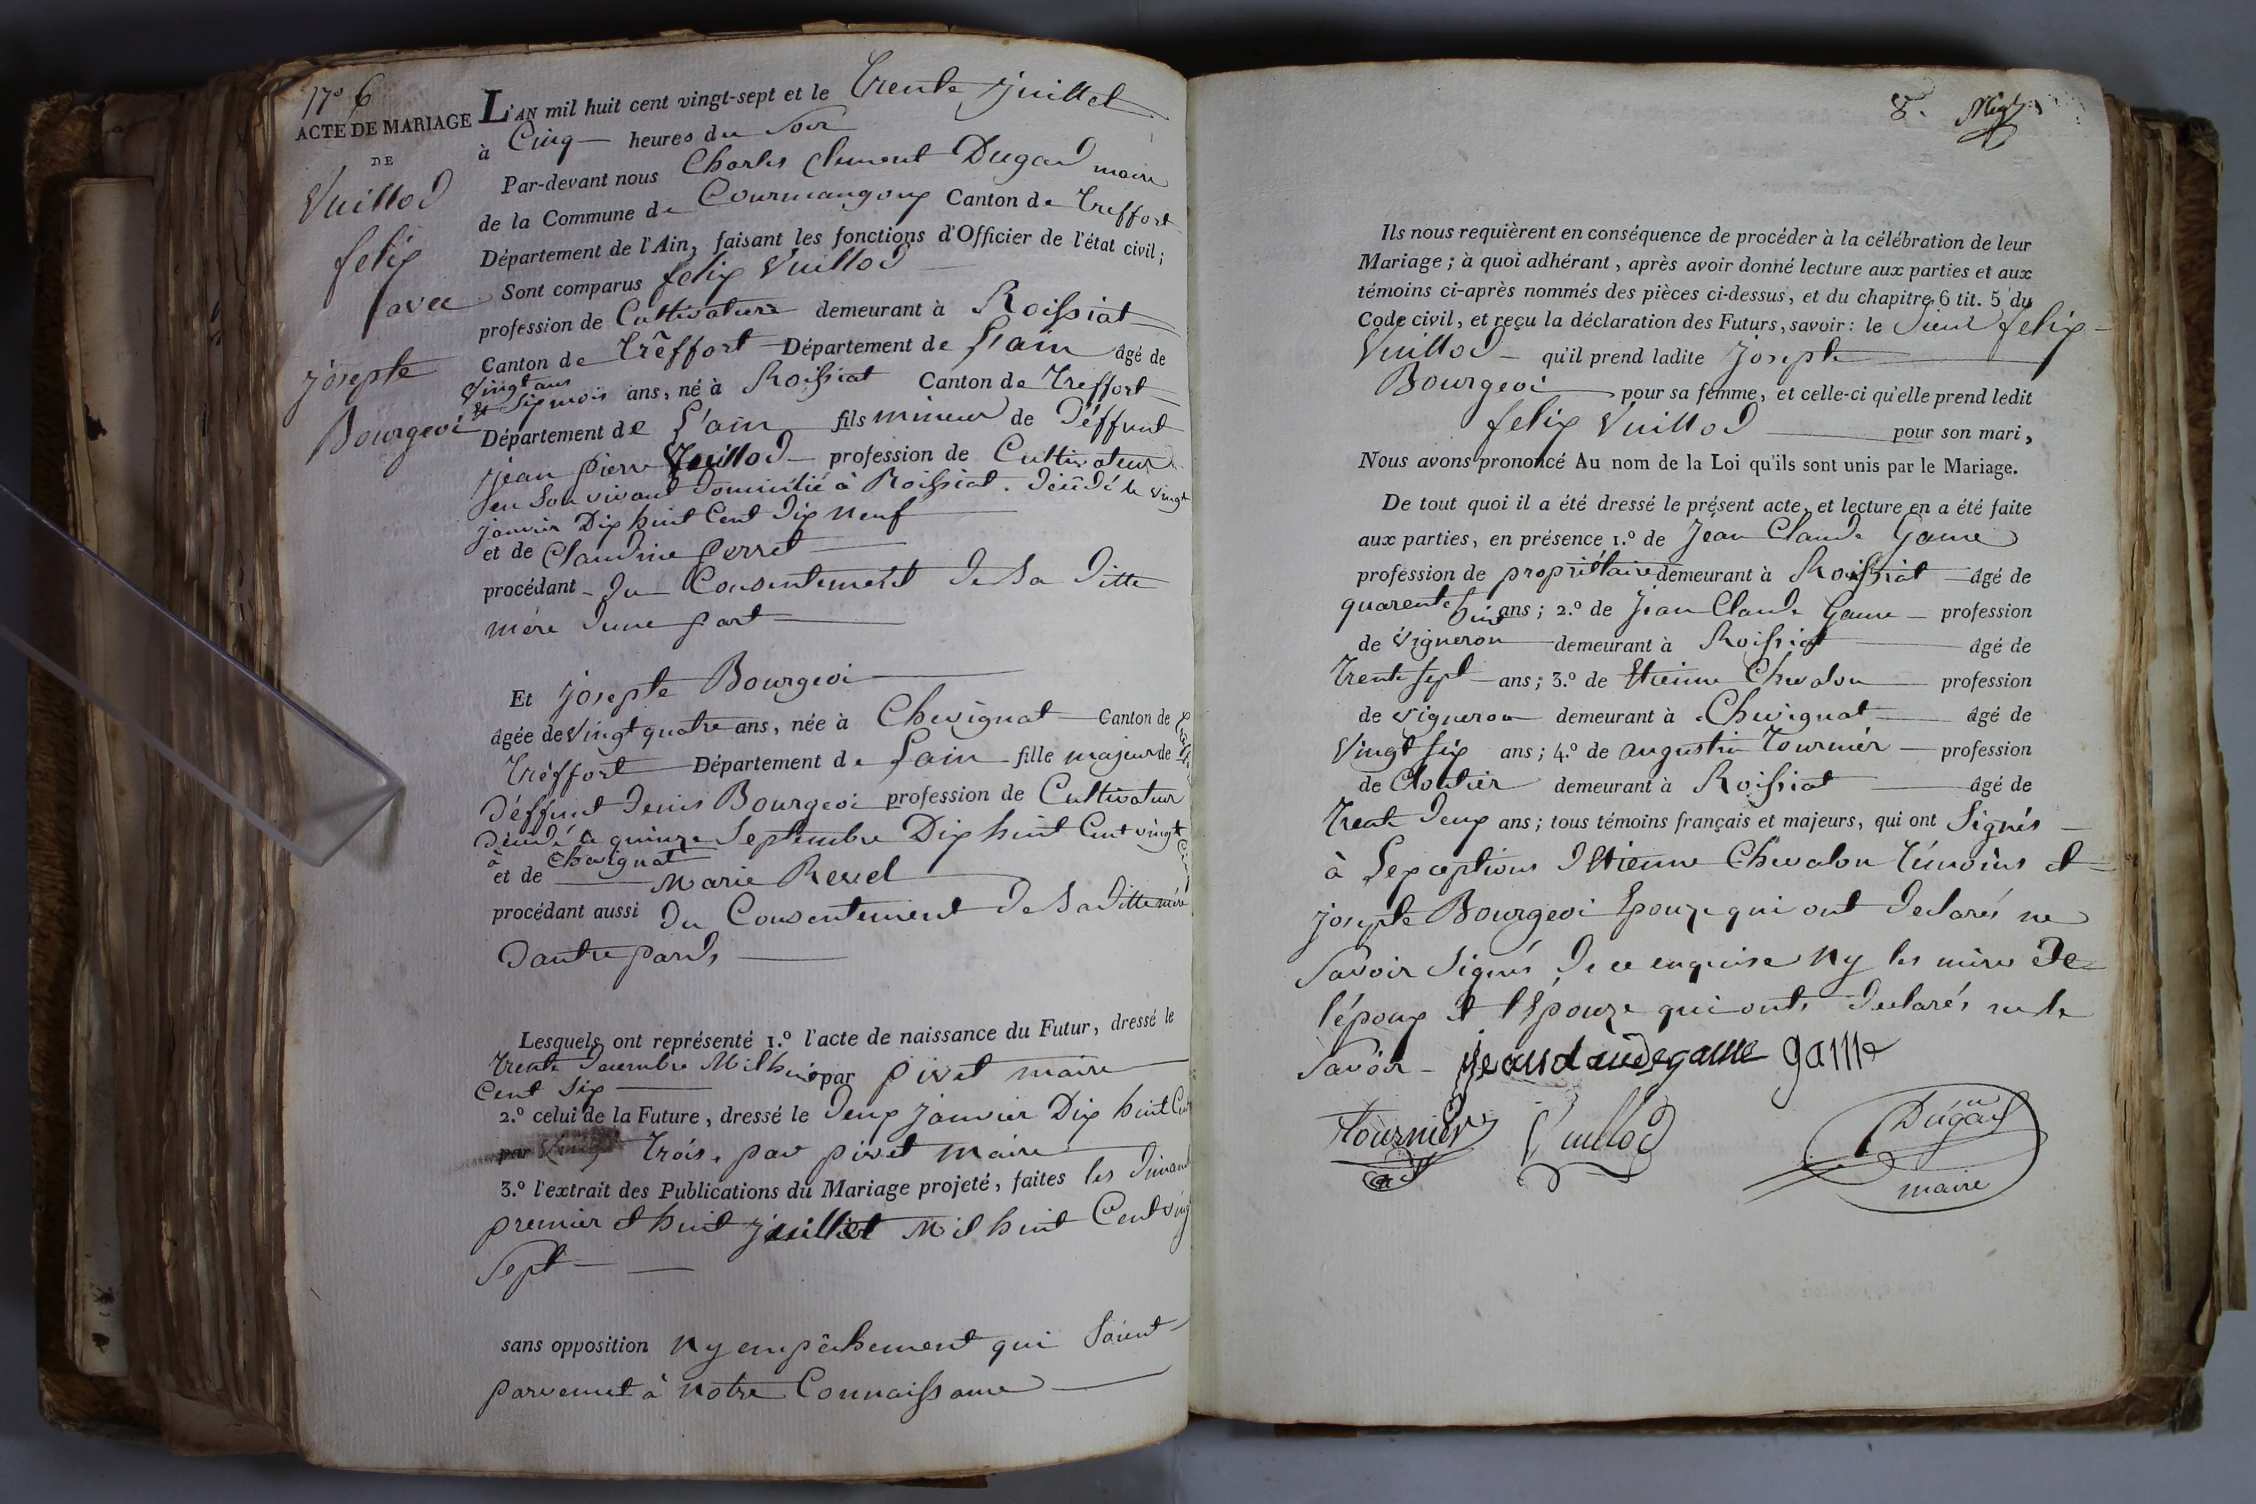 N° 6
ACTE DE MARIAGE
DE
Vuillod
felix
avec
josepte
Bourgeoi
L'AN mil huit cent vingt-sept et le trente juillet
à Cinq heures du Soir
Par-devant nous Charles Clement Dugad maire
de la Commune de Courmangoux Canton de Treffort
Département de l'Ain, faisant les fonctions d'Officier de l'état civil;
Sont comparus felix Vuillod
profession de Cultivateur demeurant à Roissiat
Canton de Tréffort Département de L'ain âgé de
Vingt ans
et Six mois ans, né à Roissiat Canton de Treffort
Département de L'ain fils mineur de Déffunt
jean pierre Vuillod profession de Cultivateur
en Son vivant domicilié à Roissiat. décédé le vingt
janvier Dix huit Cent dix neuf
et de Claudine perret
procédant du Consentement de Sa ditte
mére d'une part
Et josepte Bourgeoi
âgée de Vingt quatre ans, née à Chevignat Canton de
Tréffort Département de Lain fille majeur de
Déffunt denis Bourgeoi profession de Cultivateur
décédé le quinze Septembre Dix huit Cent vingt
à Chevignat
et de Marie Revel
procédant aussi du Consentement de Sa ditte mére
dautre pard,
Lesquels ont représenté 1.° l'acte de naissance du Futur, dressé le
trente decembre Mil huit par pivet maire
Cent Six
2.° celui de la Future, dressé le deux janvier Dix huit Cent
par trois. par pivet maire
3.° l'extrait des Publications du Mariage projeté, faites les dimanche
premier et huit juillet Mil huit Cent vingt
Sept
sans opposition ny empêchement qui Soient
parvenut à notre Connaissance
8.
Ils nous requièrent en conséquence de procéder à la célébration de leur
Mariage; à quoi adhérant, après avoir donné lecture aux parties et aux
témoins ci-après nommés des pièces ci-dessus, et du chapitre 6 tit. 5 du
Code civil, et reçu la déclaration des Futurs, savoir: le Sieur felix
Vuillod qu'il prend ladite josepte
Bourgeoi pour sa femme, et celle-ci qu'elle prend ledit
felix Vuillod pour son mari,
Nous avons prononcé Au nom de la Loi qu'ils sont unis par le Mariage.
De tout quoi il a été dressé le présent acte, et lecture en a été faite
aux parties, en présence 1.° de Jean Claude Game
profession de propriétaire demeurant à Roissiat âgé de
quarente huit ans; 2.° de Jean Claude Game profession
de Vigneron demeurant à Roissiat âgé de
trente sept ans; 3.° de Etienne Chevalon profession
de vigneron demeurant à Chevignat âgé de
Vingt six ans; 4.° de augustin Tournier profession
de Cloutier demeurant à Roissiat âgé de
trente deux ans; tous témoins français et majeurs, qui ont Signés
à L'exceptions d'Etienne Chevalon témoins et
josepte Bourgeoi Epouze qui ont declarés ne
Savoir Signés de ce enquise ny les mères de
l'époux et l'Epouze qui onts declarés ne le
Savoir
jean claude game game
Tournier Vuillod Dugad
maire